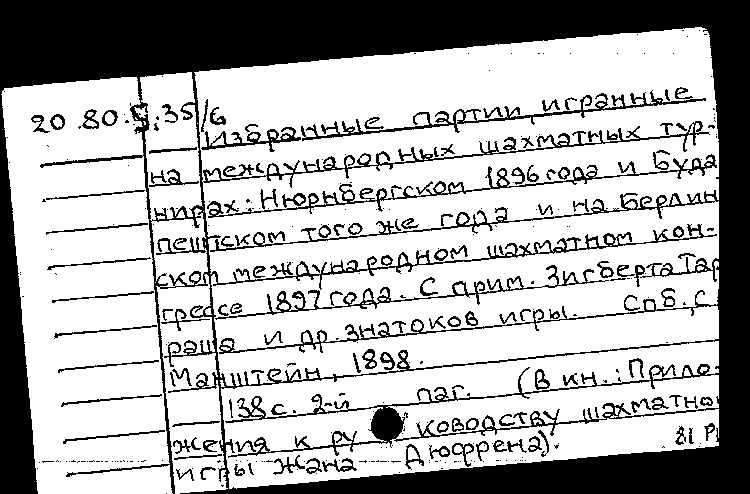 20.80.5.35/6
Избранные партии, игранные
на международных шахматных тур-
нирах: Нюрнбергском 1896 года и Буда
пештском того же года и на Берлин
ском международном шахматном кон-
грессе 1897 года. С прим. Зигберта Тар
раша и др. знатоков игры. Спб., С.
Манштейн, 1898.
138 с. 2-й паг. (В кн.: Прило-
жения к ру ководству шахматно
игры Жана Дюфрена).
81 Р